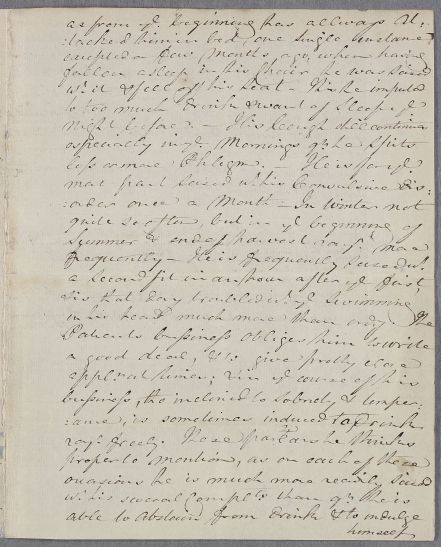 as from ye. beginning has allways at:
:tacked him in bed, one single instance
excepted a few Months ago, when having
fallen asleep in his Chair he was seized
wt. it & fell off his Seat - This he imputed
to too much Drink & want of Sleep ye
night before. - His Cough still continues
especially in ye. Mornings qn. he spits
less or more Phlegm. - He is for ye
most part seized wt. his Convulsive dis:
:order once a Month - In Winter not
quite so often, but in ye beginning of
Summer & end of harvest more
frequently - He is frequently seized wt.
a second fit in an hour after ye first,
& is that day troubled wt. ye Swimming
in his head much more than ordy. The
Patients bussiness obliges him to write
a good deal, & to give pretty close
applicat. at times; & in ye course of his
bussiness, tho inclined to Sobriety & temper:
:ance, is sometimes induced to drink
freely. These particulars he thinks
proper to mention, as on each of these
occasions he is much more readily seized
wt. his several Complts. than qn. he is
able to abstain from Drink & to indulge
himself